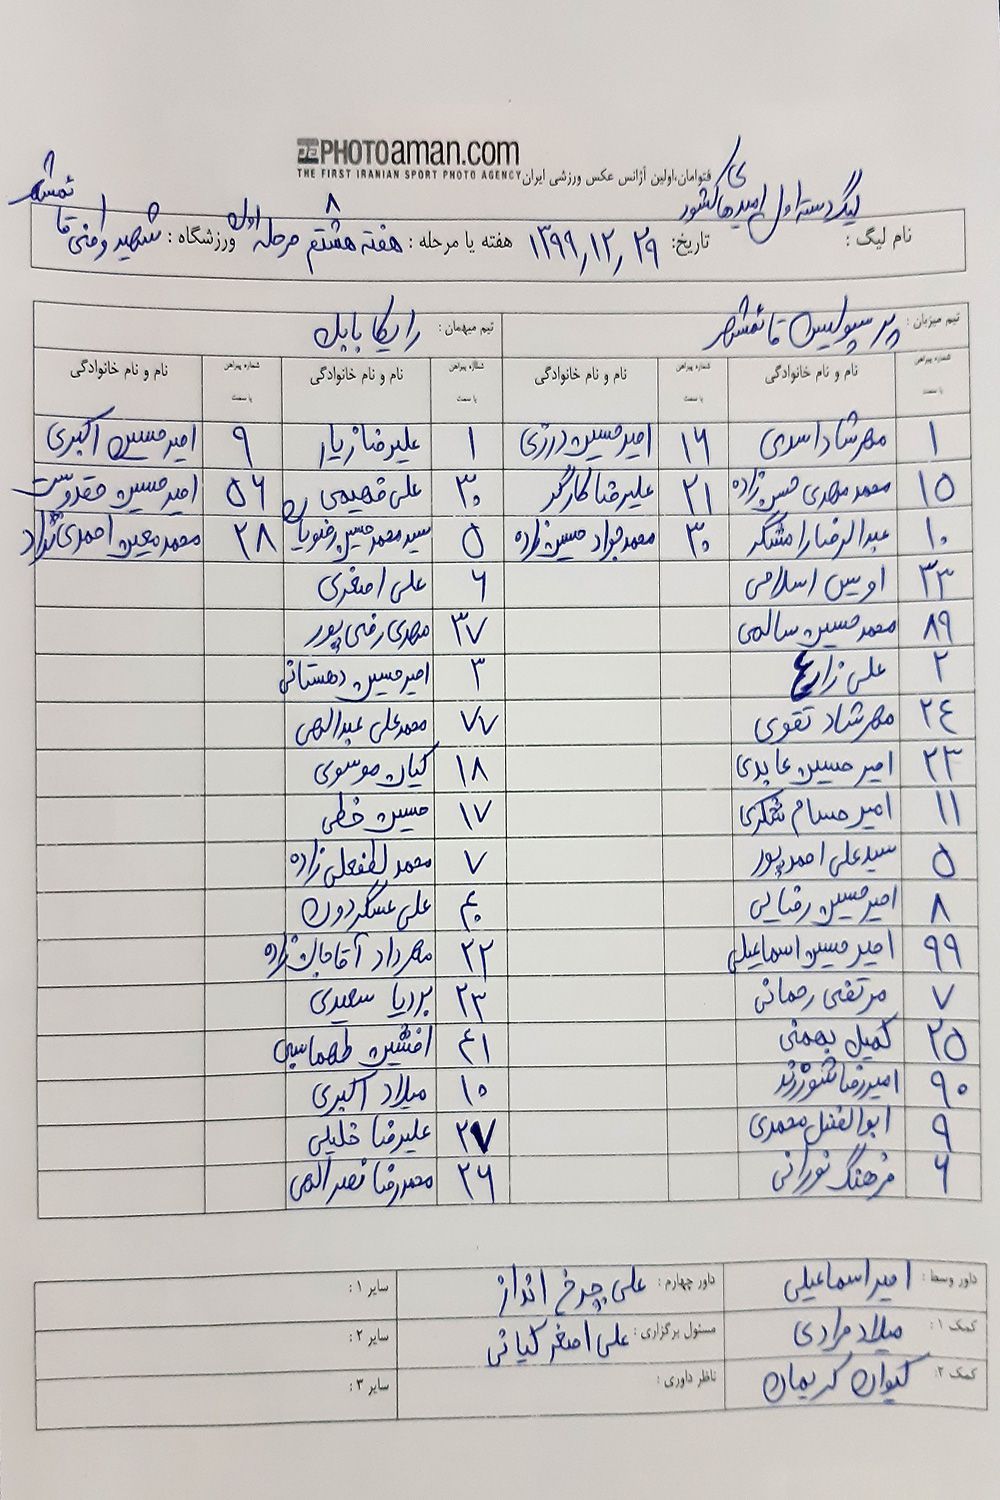 PHOTOaman.com
THE FIRST IRANIAN SPORT PHOTO AGENCY فتوامان،اولین آژانس عکس ورزشی ایران
نام لیگ : لیگ دسته اول امیدهای کشور تاریخ: ۱۳۹۹,۱۲,۲۹ هفته یا مرحله : هفته هشتم مرحله اول ۸ ورزشگاه : شهید وطنی قائمشهر
تیم میزبان : پرسپولیس قائمشهر تیم میهمان : رایکا بابل
شماره پیراهن یا سمت نام و نام خانوادگی شماره پیراهن یا سمت نام و نام خانوادگی شماره پیراهن یا سمت نام و نام خانوادگی شماره پیراهن یا سمت نام و نام خانوادگی
۱ مهرشاد اسدی ۱۶ امیرحسین درزی ۱ علیرضا زیار ۹ امیرحسین اکبری
۱۵ محمد مهدی حسن زاده ۲۱ علیرضا کارگر ۳۰ علی فهیمی ۵۶ امیرحسین حقدوست
۱۰ عبدالرضا رامشگر ۳۰ محمدجواد حسین زاده ۵ سید محمد حسین رضویان ۲۸ محمد معین احمدی نژاد
۳۳ اویس اسلامی ۶ علی اصغری
۸۹ محمد حسین سالمی ۳۷ مهدی رضی پور
۲ علی زارع ۳ امیرحسین دهستانی
۲۴ مهرشاد تقوی ۷۷ محمد علی عبدالهی
۲۳ امیر حسین عابدی ۱۸ کیان موسوی
۱۱ امیر حسام شکری ۱۷ حسین خطی
۵ سید علی احمدپور ۷ محمد لطفعلی زاده
۸ امیرحسین رضایی ۴۰ علی عسگردون
۹۹ امیر حسین اسماعیلی ۲۲ مهرداد آقاجان زاده
۷ مرتضی رحمانی ۲۳ بردیا سعیدی
۲۵ کمیل بهمنی ۴۱ افشین طهماسبی
۹۰ امیررضا ۱۰ میلاد اکبری
۹ ابوالفضل محمدی ۲۷ علیرضا خلیلی
۶ فرهنگ نورانی ۲۶ محمدرضا نصرالهی
داور وسط : امیر اسماعیلی داور چهارم : علی چرخ انداز سایر ۱ :
کمک ۱ : میلاد مرادی مسئول برگزاری : علی اصغر کیانی سایر ۲ :
کمک ۲: کیوان کریمان ناظر داوری : سایر ۳ :